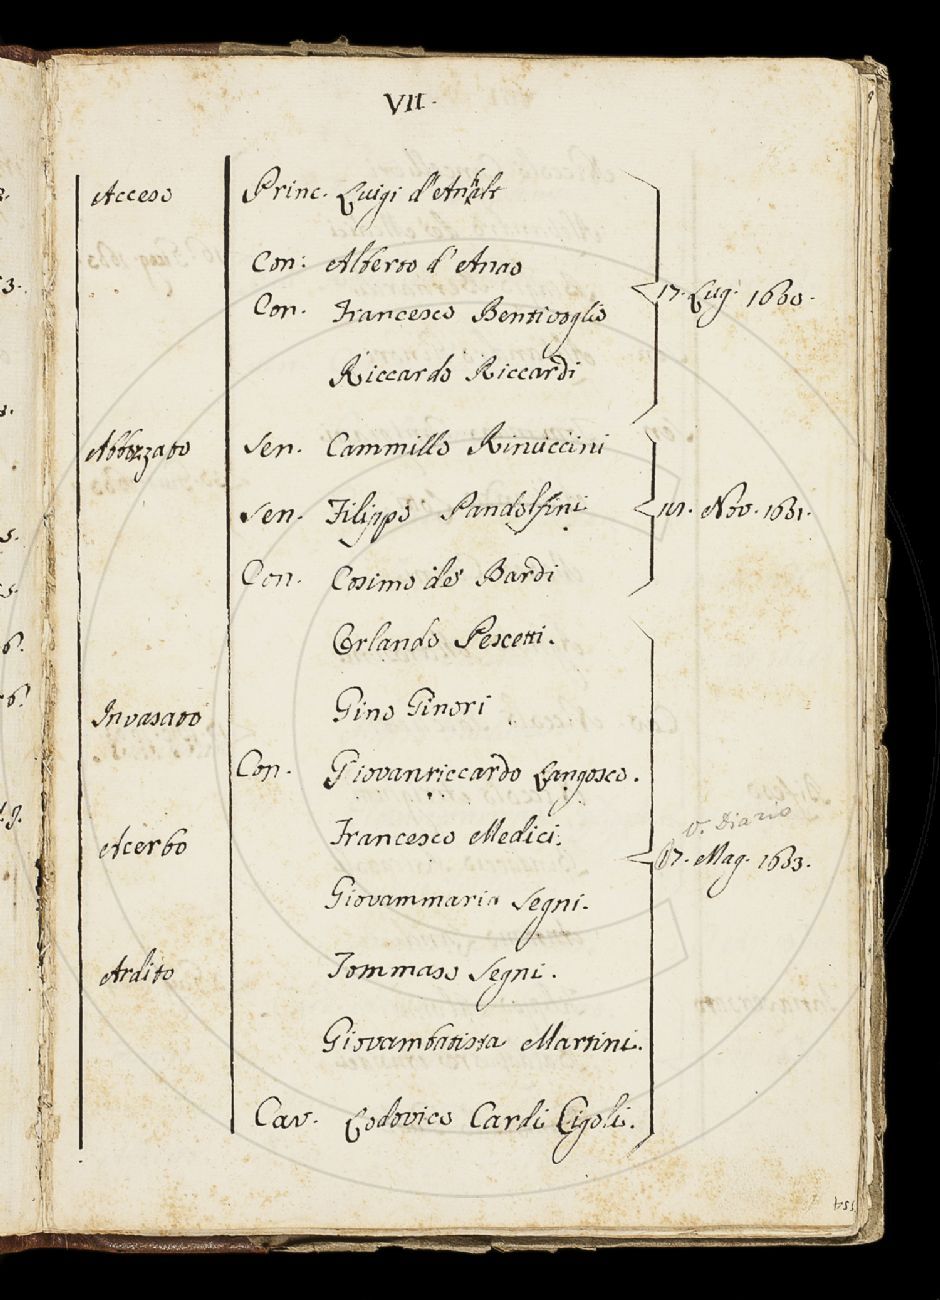 VII.
Acceso Princ. Luigi d'
Con: Alberto d'
Con. Francesco Bentivoglio 17. Lug. 1660.
Riccardo Riccardi
Abbozzato Sen. Cammillo Rinuccini
Sen. Filippo Pandolfini Nov. 1661.
Con. Cosimo de' Bardi
Orlando Pescetti.
Gino Ginori
Invasato
Con. Giovanriccardo Langosco.
v. Diario
Acerbo Francesco Medici.
17. Mag. 1663.
Giovammaria Segni.
Ardito Tommaso Segni.
Giovambatista Martini.
Cav. Lodovico Cardi Cigoli.